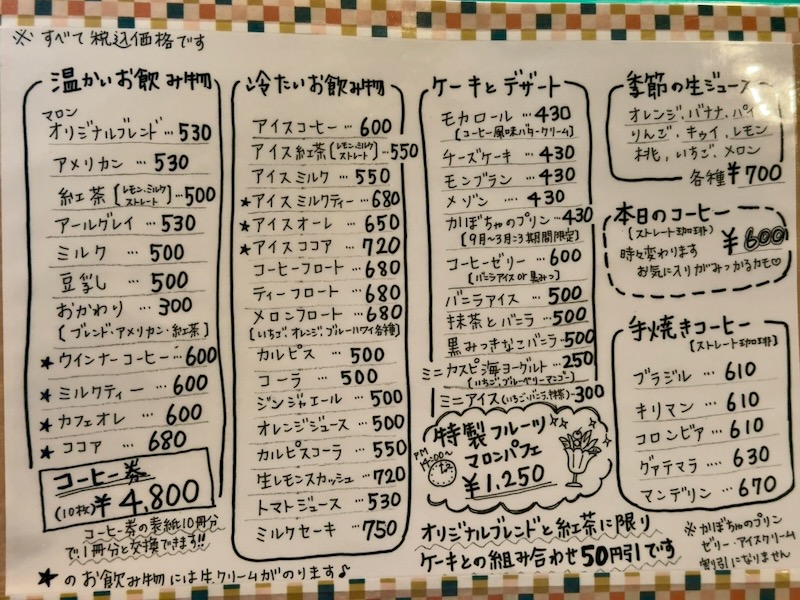 ※ すべて税込価格です
温かいお飲み物
マロン
オリジナルブレンド… 530
アメリカン … 530
紅茶［レモン、ミルク ストレート］… 500
アールグレイ … 530
ミルク … 500
豆乳し … 500
おかわり … 300
［ブレンド・アメリカン・紅茶］
★ウインナーコーヒー… 600
★ミルクティー … 600
★カフェオレ … 600
★ココア … 680
コーヒー券
(10枚) ¥4,800
コーヒー券の表紙10冊分
で、1冊分と交換できます!!
★のお飲み物には生クリームがのります♪
冷たいお飲み物
アイスコーヒー … 600
アイス紅茶［レモン、ミルク ストレート］… 550
アイスミルク … 550
★アイスミルクティー … 680
★アイスオーレ … 650
★アイスココア … 720
コーヒーフロート … 680
ティーフロート … 680
メロンフロート … 680
［いちご、オレンジ、ブルーハワイ各種］
カルピス … 500
コーラ … 500
ジンジャエール … 500
オレンジジュース … 500
カルピスコーラ … 550
生レモンスカッシュ … 720
トマトジュース … 530
ミルクセーキ … 750
ケーキとデザート
モカロール … 430
［コーヒー風味バタークリーム］
チーズケーキ … 430
モンブラン … 430
メゾン … 430
かぼちゃのプリン… 430
［9月〜3月ごろ期間限定］
コーヒーゼリー … 600
［バニラアイス or 黒みつ］
バニラアイス … 500
抹茶とバニラ … 500
黒みつきなこバニラ… 500
ミニカスピ海ヨーグルト… 250
［いちご、ブルーベリー、マンゴー］
ミニアイス（いちご、バニラ、抹茶）… 300
特製フルーツ
マロンパフェ
PM 14:00〜
¥1,250
オリジナルブレンドと紅茶に限り
ケーキとの組み合わせ50円引です
季節の生ジュース
オレンジ、バナナ、パイン
りんご、キウイ、レモン
桃、いちご、メロン
各種 ¥700
本日のコーヒー
（ストレート珈琲）
¥600
時々変わります
お気に入りがみつかるカモ♡
手焼きコーヒー
［ストレート珈琲］
ブラジル … 610
キリマン … 610
コロンビア … 610
グァテマラ … 630
マンデリン … 670
※かぼちゃのプリン
ゼリー・アイスクリーム
割引になりません